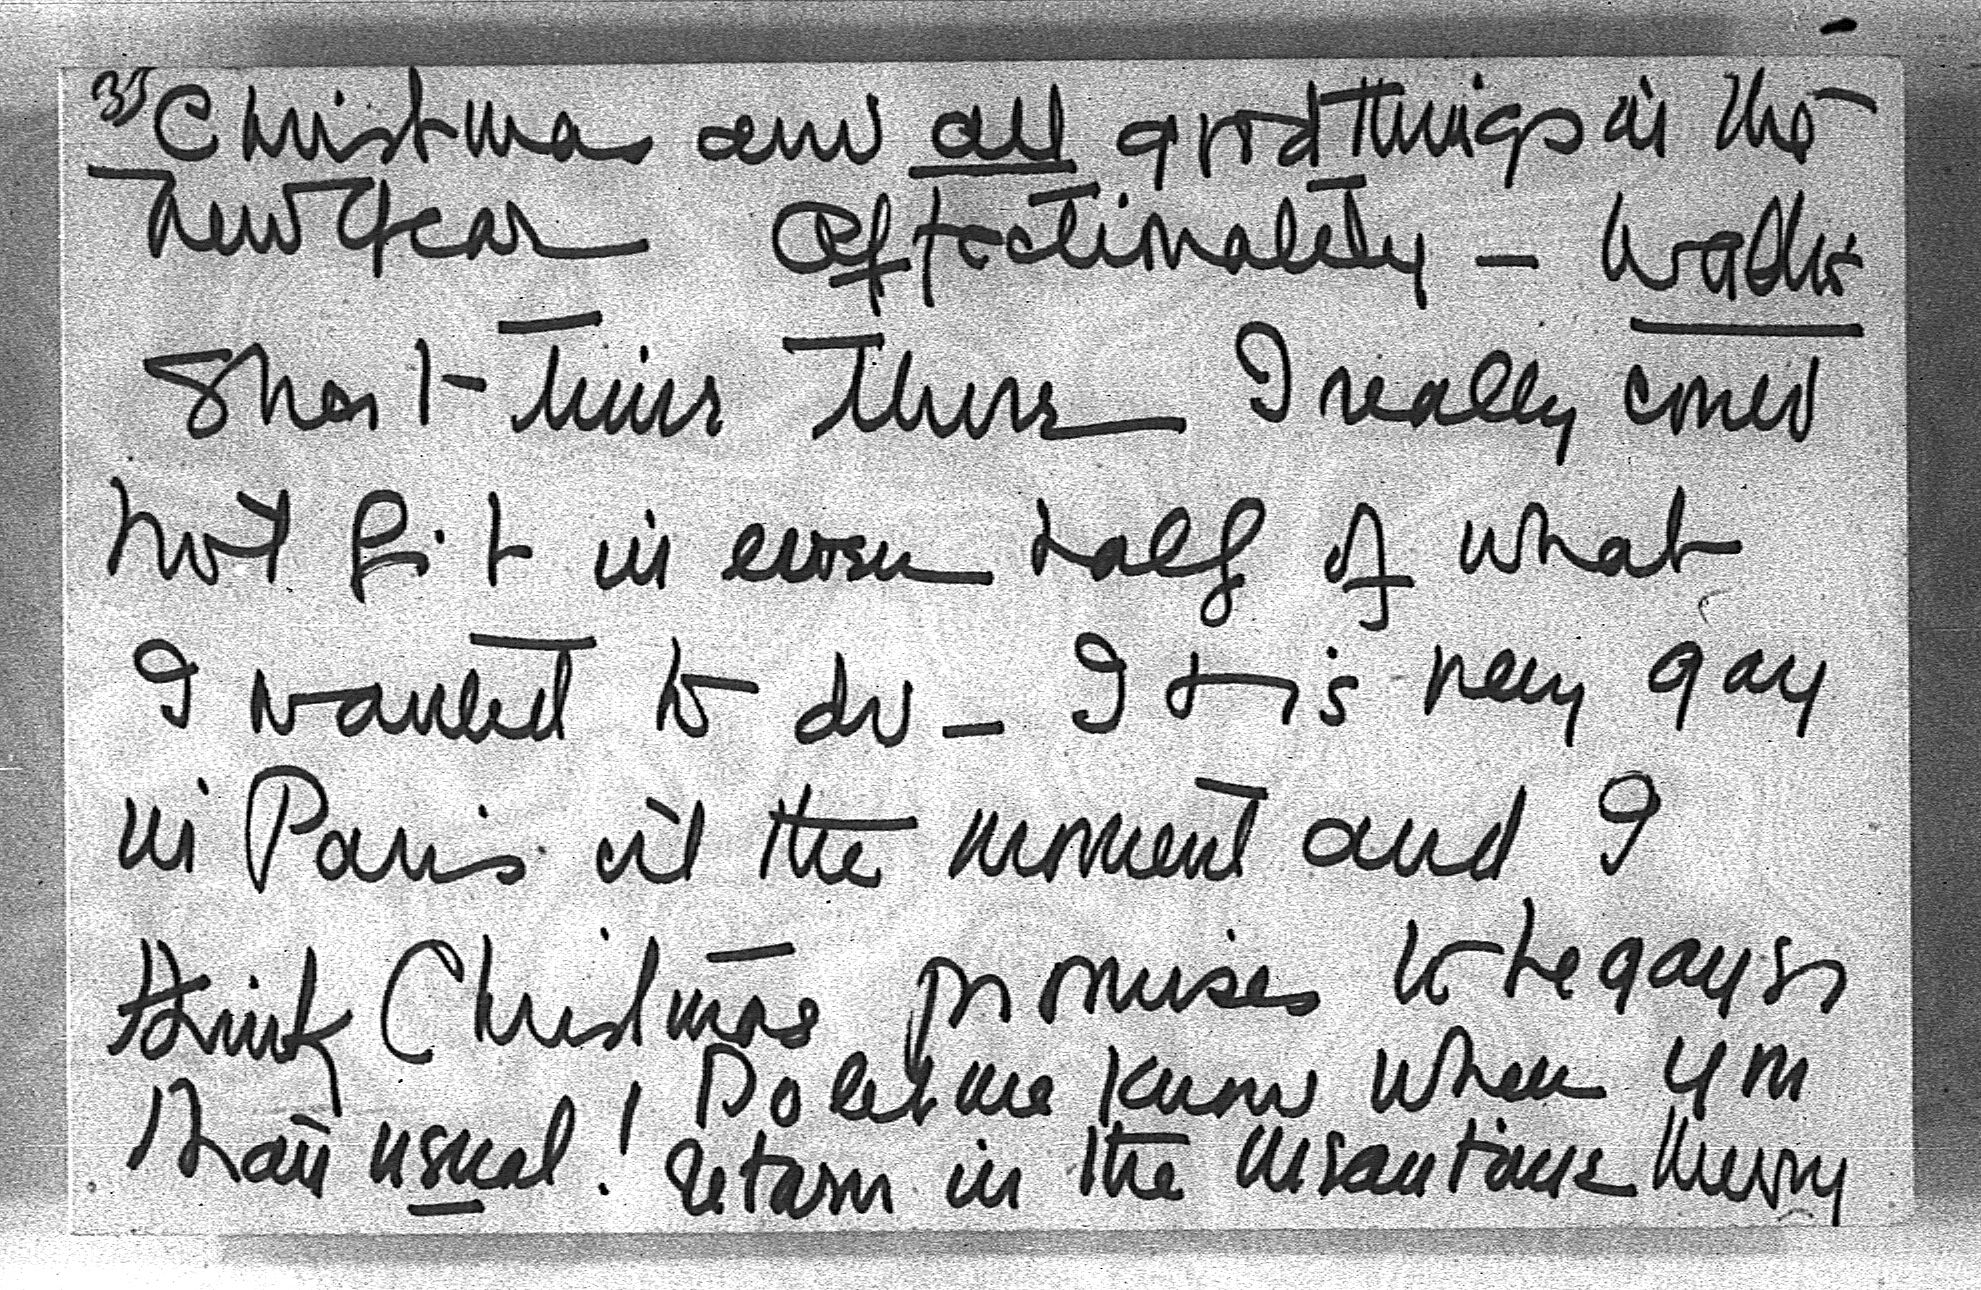 35 Christmas and all good things in the
New Year Affectionately – Wallis
short time there I really could
not fit in even half of what
I wanted to do – It is very gay
in Paris at the moment and I
think Christmas promises to be gayer
than usual! Do let me know when you
return in the meantime Merry